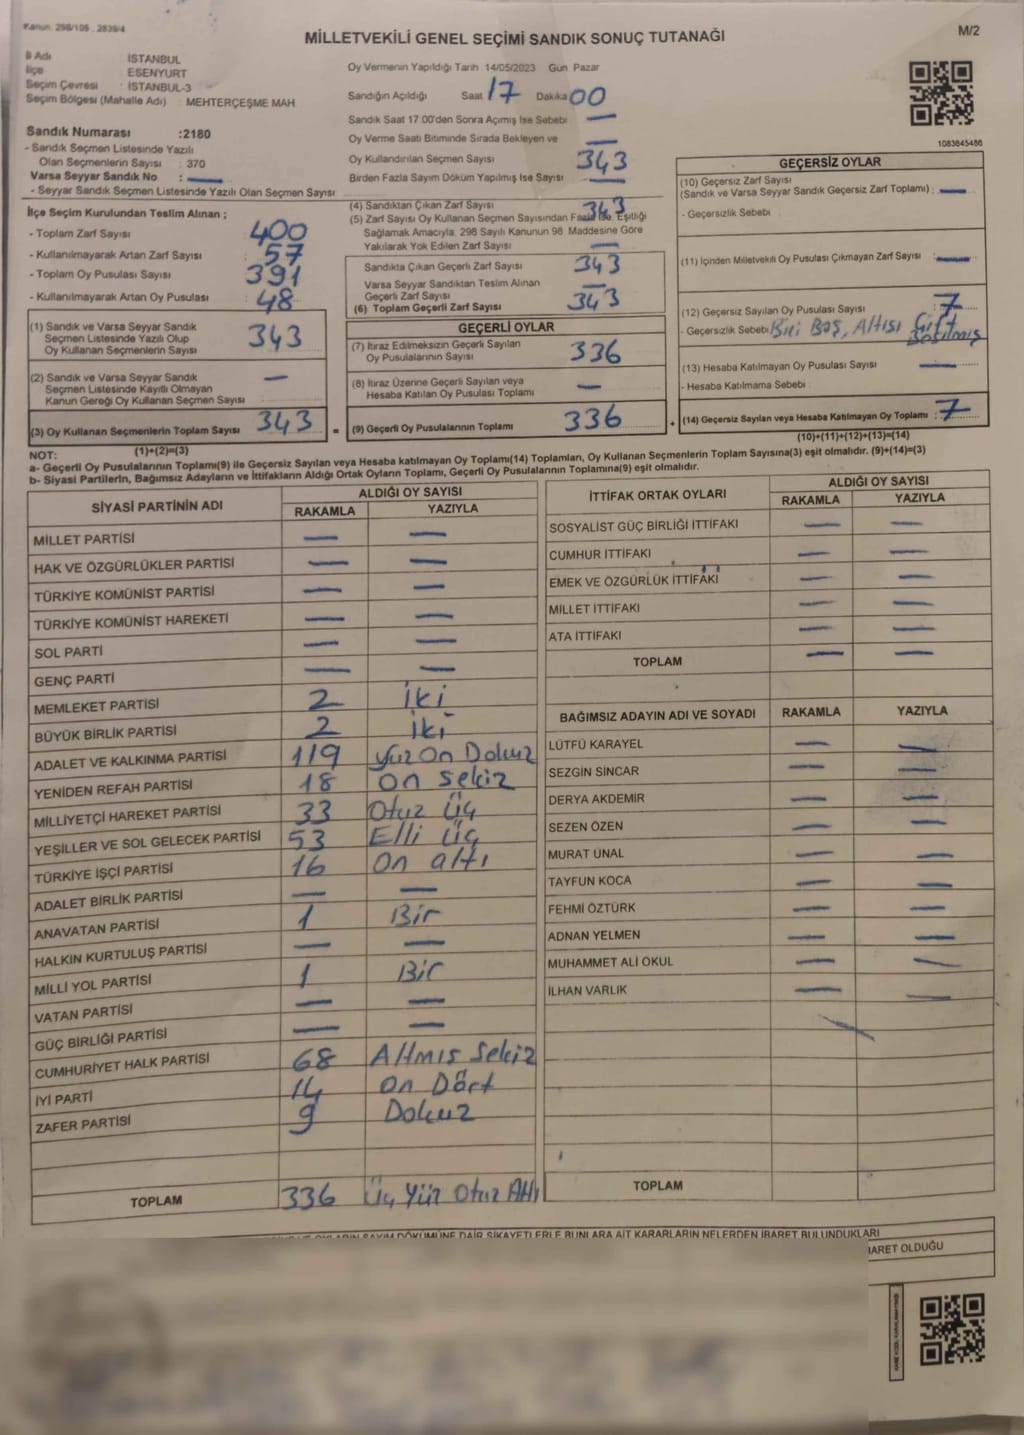 Kanun: 298/105 , 2839/4
MİLLETVEKİLİ GENEL SEÇİMİ SANDIK SONUÇ TUTANAĞI
M/2
İl Adı İSTANBUL
İlçe ESENYURT
Seçim Çevresi : İSTANBUL-3
Seçim Bölgesi (Mahalle Adı) : MEHTERÇEŞME MAH
Sandık Numarası :2180
- Sandık Seçmen Listesinde Yazılı
Olan Seçmenlerin Sayısı : 370
Varsa Seyyar Sandık No : —
- Seyyar Sandık Seçmen Listesinde Yazılı Olan Seçmen Sayısı
Oy Vermenin Yapıldığı Tarih 14/05/2023 Gün Pazar
Sandığın Açıldığı Saat 17 Dakika 00
Sandık Saat 17.00'den Sonra Açımış İse Sebebi —
Oy Verme Saati Bitiminde Sırada Bekleyen ve —
Oy Kullandırılan Seçmen Sayısı 343
Birden Fazla Sayım Döküm Yapılmış İse Sayısı —
1083645486
İlçe Seçim Kurulundan Teslim Alınan ;
- Toplam Zarf Sayısı 400
- Kullanılmayarak Artan Zarf Sayısı : 57
- Toplam Oy Pusulası Sayısı 391
- Kullanılmayarak Artan Oy Pusulası : 48
(1) Sandık ve Varsa Seyyar Sandık
Seçmen Listesinde Yazılı Olup
Oy Kullanan Seçmenlerin Sayısı 343
(2) Sandık ve Varsa Seyyar Sandık
Seçmen Listesinde Kayıtlı Olmayan
Kanun Gereği Oy Kullanan Seçmen Sayısı —
(3) Oy Kullanan Seçmenlerin Toplam Sayısı 343
(1)+(2)=(3)
(4) Sandıktan Çıkan Zarf Sayısı 343
(5) Zarf Sayısı Oy Kullanan Seçmen Sayısından Fazla İse, Eşitliği
Sağlamak Amacıyla, 298 Sayılı Kanunun 98. Maddesine Göre
Yakılarak Yok Edilen Zarf Sayısı —
Sandıkta Çıkan Geçerli Zarf Sayısı 343
Varsa Seyyar Sandıktan Teslim Alınan
Geçerli Zarf Sayısı —
(6) Toplam Geçerli Zarf Sayısı 343
GEÇERLİ OYLAR
(7) İtiraz Edilmeksizin Geçerli Sayılan
Oy Pusulalarının Sayısı 336
(8) İtiraz Üzerine Geçerli Sayılan veya
Hesaba Katılan Oy Pusulası Toplamı —
= (9) Geçerli Oy Pusulalarının Toplamı 336
GEÇERSİZ OYLAR
(10) Geçersiz Zarf Sayısı
(Sandık ve Varsa Seyyar Sandık Geçersiz Zarf Toplamı) : —
- Geçersizlik Sebebi
(11) İçinden Milletvekili Oy Pusulası Çıkmayan Zarf Sayısı —
(12) Geçersiz Sayılan Oy Pusulası Sayısı 7
- Geçersizlik Sebebi Biri Boş, Altısı Çift
Basılmış
(13) Hesaba Katılmayan Oy Pusulası Sayısı —
- Hesaba Katılmama Sebebi
+ (14) Geçersiz Sayılan veya Hesaba Katılmayan Oy Toplamı : 7
(10)+(11)+(12)+(13)=(14)
NOT:
a- Geçerli Oy Pusulalarının Toplamı(9) ile Geçersiz Sayılan veya Hesaba katılmayan Oy Toplamı(14) Toplamları, Oy Kullanan Seçmenlerin Toplam Sayısına(3) eşit olmalıdır. (9)+(14)=(3)
b- Siyasi Partilerin, Bağımsız Adayların ve İttifakların Aldığı Ortak Oyların Toplamı, Geçerli Oy Pusulalarının Toplamına(9) eşit olmalıdır.
SİYASİ PARTİNİN ADI ALDIĞI OY SAYISI
RAKAMLA YAZIYLA
MİLLET PARTİSİ — —
HAK VE ÖZGÜRLÜKLER PARTİSİ — —
TÜRKİYE KOMÜNİST PARTİSİ — —
TÜRKİYE KOMÜNİST HAREKETİ — —
SOL PARTİ — —
GENÇ PARTİ — —
MEMLEKET PARTİSİ 2 iki
BÜYÜK BİRLİK PARTİSİ 2 iki
ADALET VE KALKINMA PARTİSİ 119 yüz on Dokuz
YENİDEN REFAH PARTİSİ 18 on sekiz
MİLLİYETÇİ HAREKET PARTİSİ 33 Otuz üç
YEŞİLLER VE SOL GELECEK PARTİSİ 53 Elli üç
TÜRKİYE İŞÇİ PARTİSİ 16 on altı
ADALET BİRLİK PARTİSİ — —
ANAVATAN PARTİSİ 1 Bir
HALKIN KURTULUŞ PARTİSİ — —
MİLLİ YOL PARTİSİ 1 Bir
VATAN PARTİSİ — —
GÜÇ BİRLİĞİ PARTİSİ — —
CUMHURİYET HALK PARTİSİ 68 Altmış Sekiz
İYİ PARTİ 14 on Dört
ZAFER PARTİSİ 9 Dokuz
TOPLAM 336 Üç Yüz Otuz Altı
İTTİFAK ORTAK OYLARI ALDIĞI OY SAYISI
RAKAMLA YAZIYLA
SOSYALİST GÜÇ BİRLİĞİ İTTİFAKI — —
CUMHUR İTTİFAKI — —
EMEK VE ÖZGÜRLÜK İTTİFAKI — —
MİLLET İTTİFAKI — —
ATA İTTİFAKI — —
TOPLAM — —
BAĞIMSIZ ADAYIN ADI VE SOYADI RAKAMLA YAZIYLA
LÜTFÜ KARAYEL — —
SEZGİN SİNCAR — —
DERYA AKDEMİR — —
SEZEN ÖZEN — —
MURAT ÜNAL — —
TAYFUN KOCA — —
FEHMİ ÖZTÜRK — —
ADNAN YELMEN — —
MUHAMMET ALİ OKUL — —
İLHAN VARLIK — —
TOPLAM
SAYIM DÖKÜMÜNE DAİR ŞİKAYETLERLE BUNLARA AİT KARARLARIN NELERDEN İBARET BULUNDUKLARI
İBARET OLDUĞU